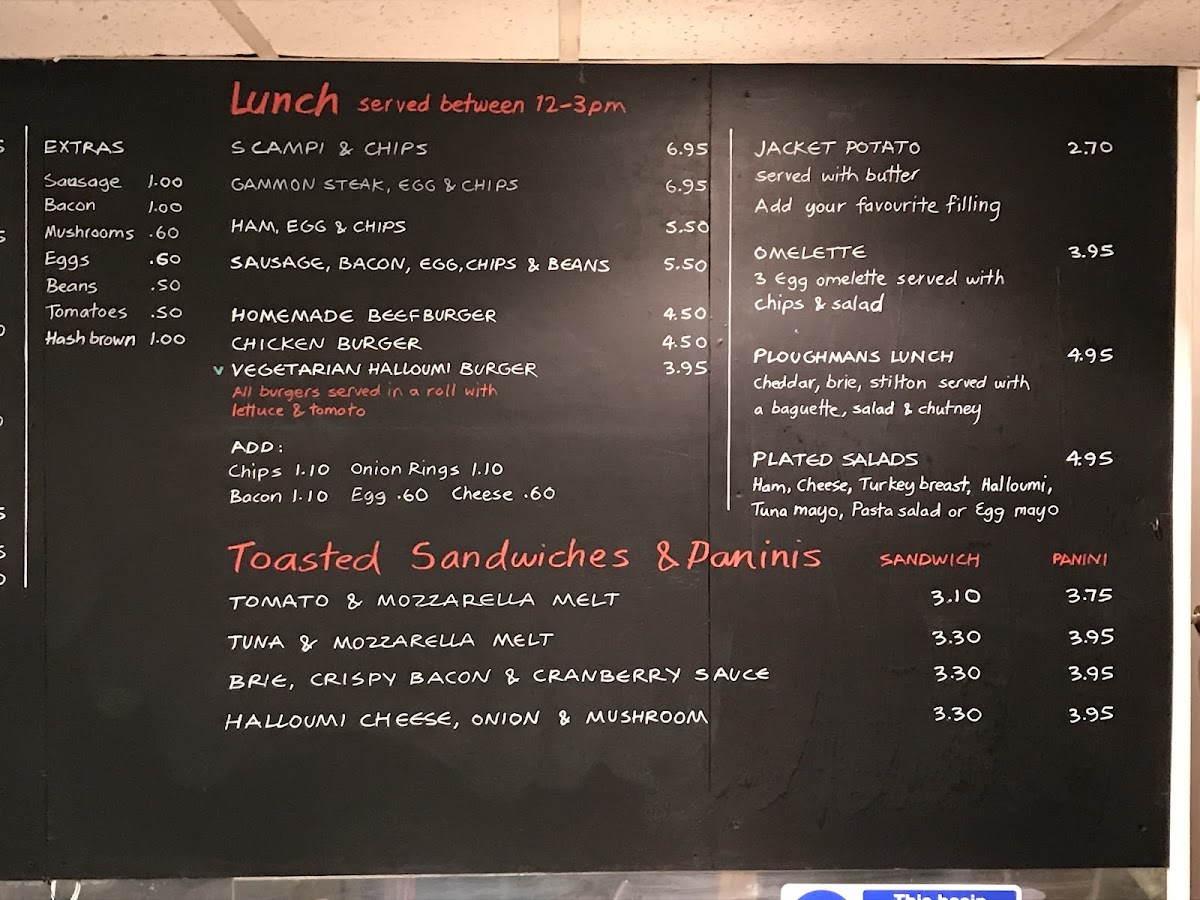 EXTRAS
Sausage 1.00
Bacon 1.00
Mushrooms .60
Eggs .60
Beans .50
Tomatoes .50
Hash brown 1.00
Lunch served between 12-3pm
SCAMPI & CHIPS 6.95
GAMMON STEAK, EGG & CHIPS 6.95
HAM, EGG & CHIPS 5.50
SAUSAGE, BACON, EGG, CHIPS & BEANS 5.50
HOMEMADE BEEFBURGER 4.50
CHICKEN BURGER 4.50
V VEGETARIAN HALLOUMI BURGER 3.95
All burgers served in a roll with
lettuce & tomato
ADD:
Chips 1.10 Onion Rings 1.10
Bacon 1.10 Egg .60 Cheese .60
JACKET POTATO 2.70
served with butter
Add your favourite filling
OMELETTE 3.95
3 Egg omelette served with
chips & salad
PLOUGHMANS LUNCH 4.95
Cheddar, brie, stilton served with
a baguette, salad & chutney
PLATED SALADS 4.95
Ham, Cheese, Turkey breast, Halloumi,
Tuna mayo, Pasta salad or Egg mayo
Toasted Sandwiches & Paninis SANDWICH PANINI
TOMATO & MOZZARELLA MELT 3.10 3.75
TUNA & MOZZARELLA MELT 3.30 3.95
BRIE, CRISPY BACON & CRANBERRY SAUCE 3.30 3.95
HALLOUMI CHEESE, ONION & MUSHROOM 3.30 3.95
This basin